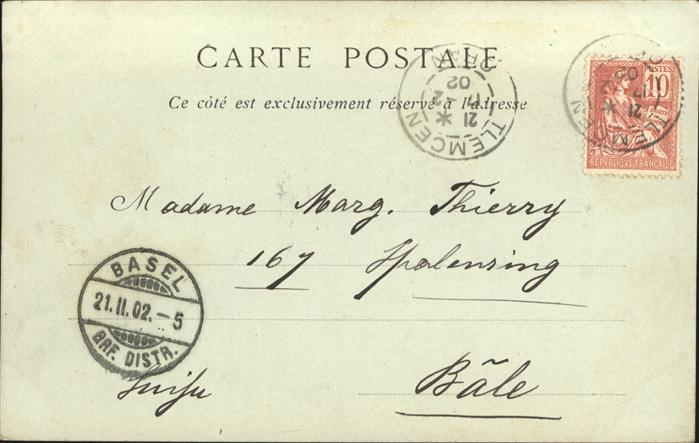 CARTE POSTALE
Ce côté est exclusivement réservé à l'adresse
TLEMCEN
ORAN
21
17 -2
02
TLEMCEN
21
17 -2
02
10
POSTES
REPUBLIQUE FRANÇAISE
Madame Marg. Thierry
167 Spalenring
BASEL
21.II.02.-5
BRF. DISTR.
Suisse
Bâle